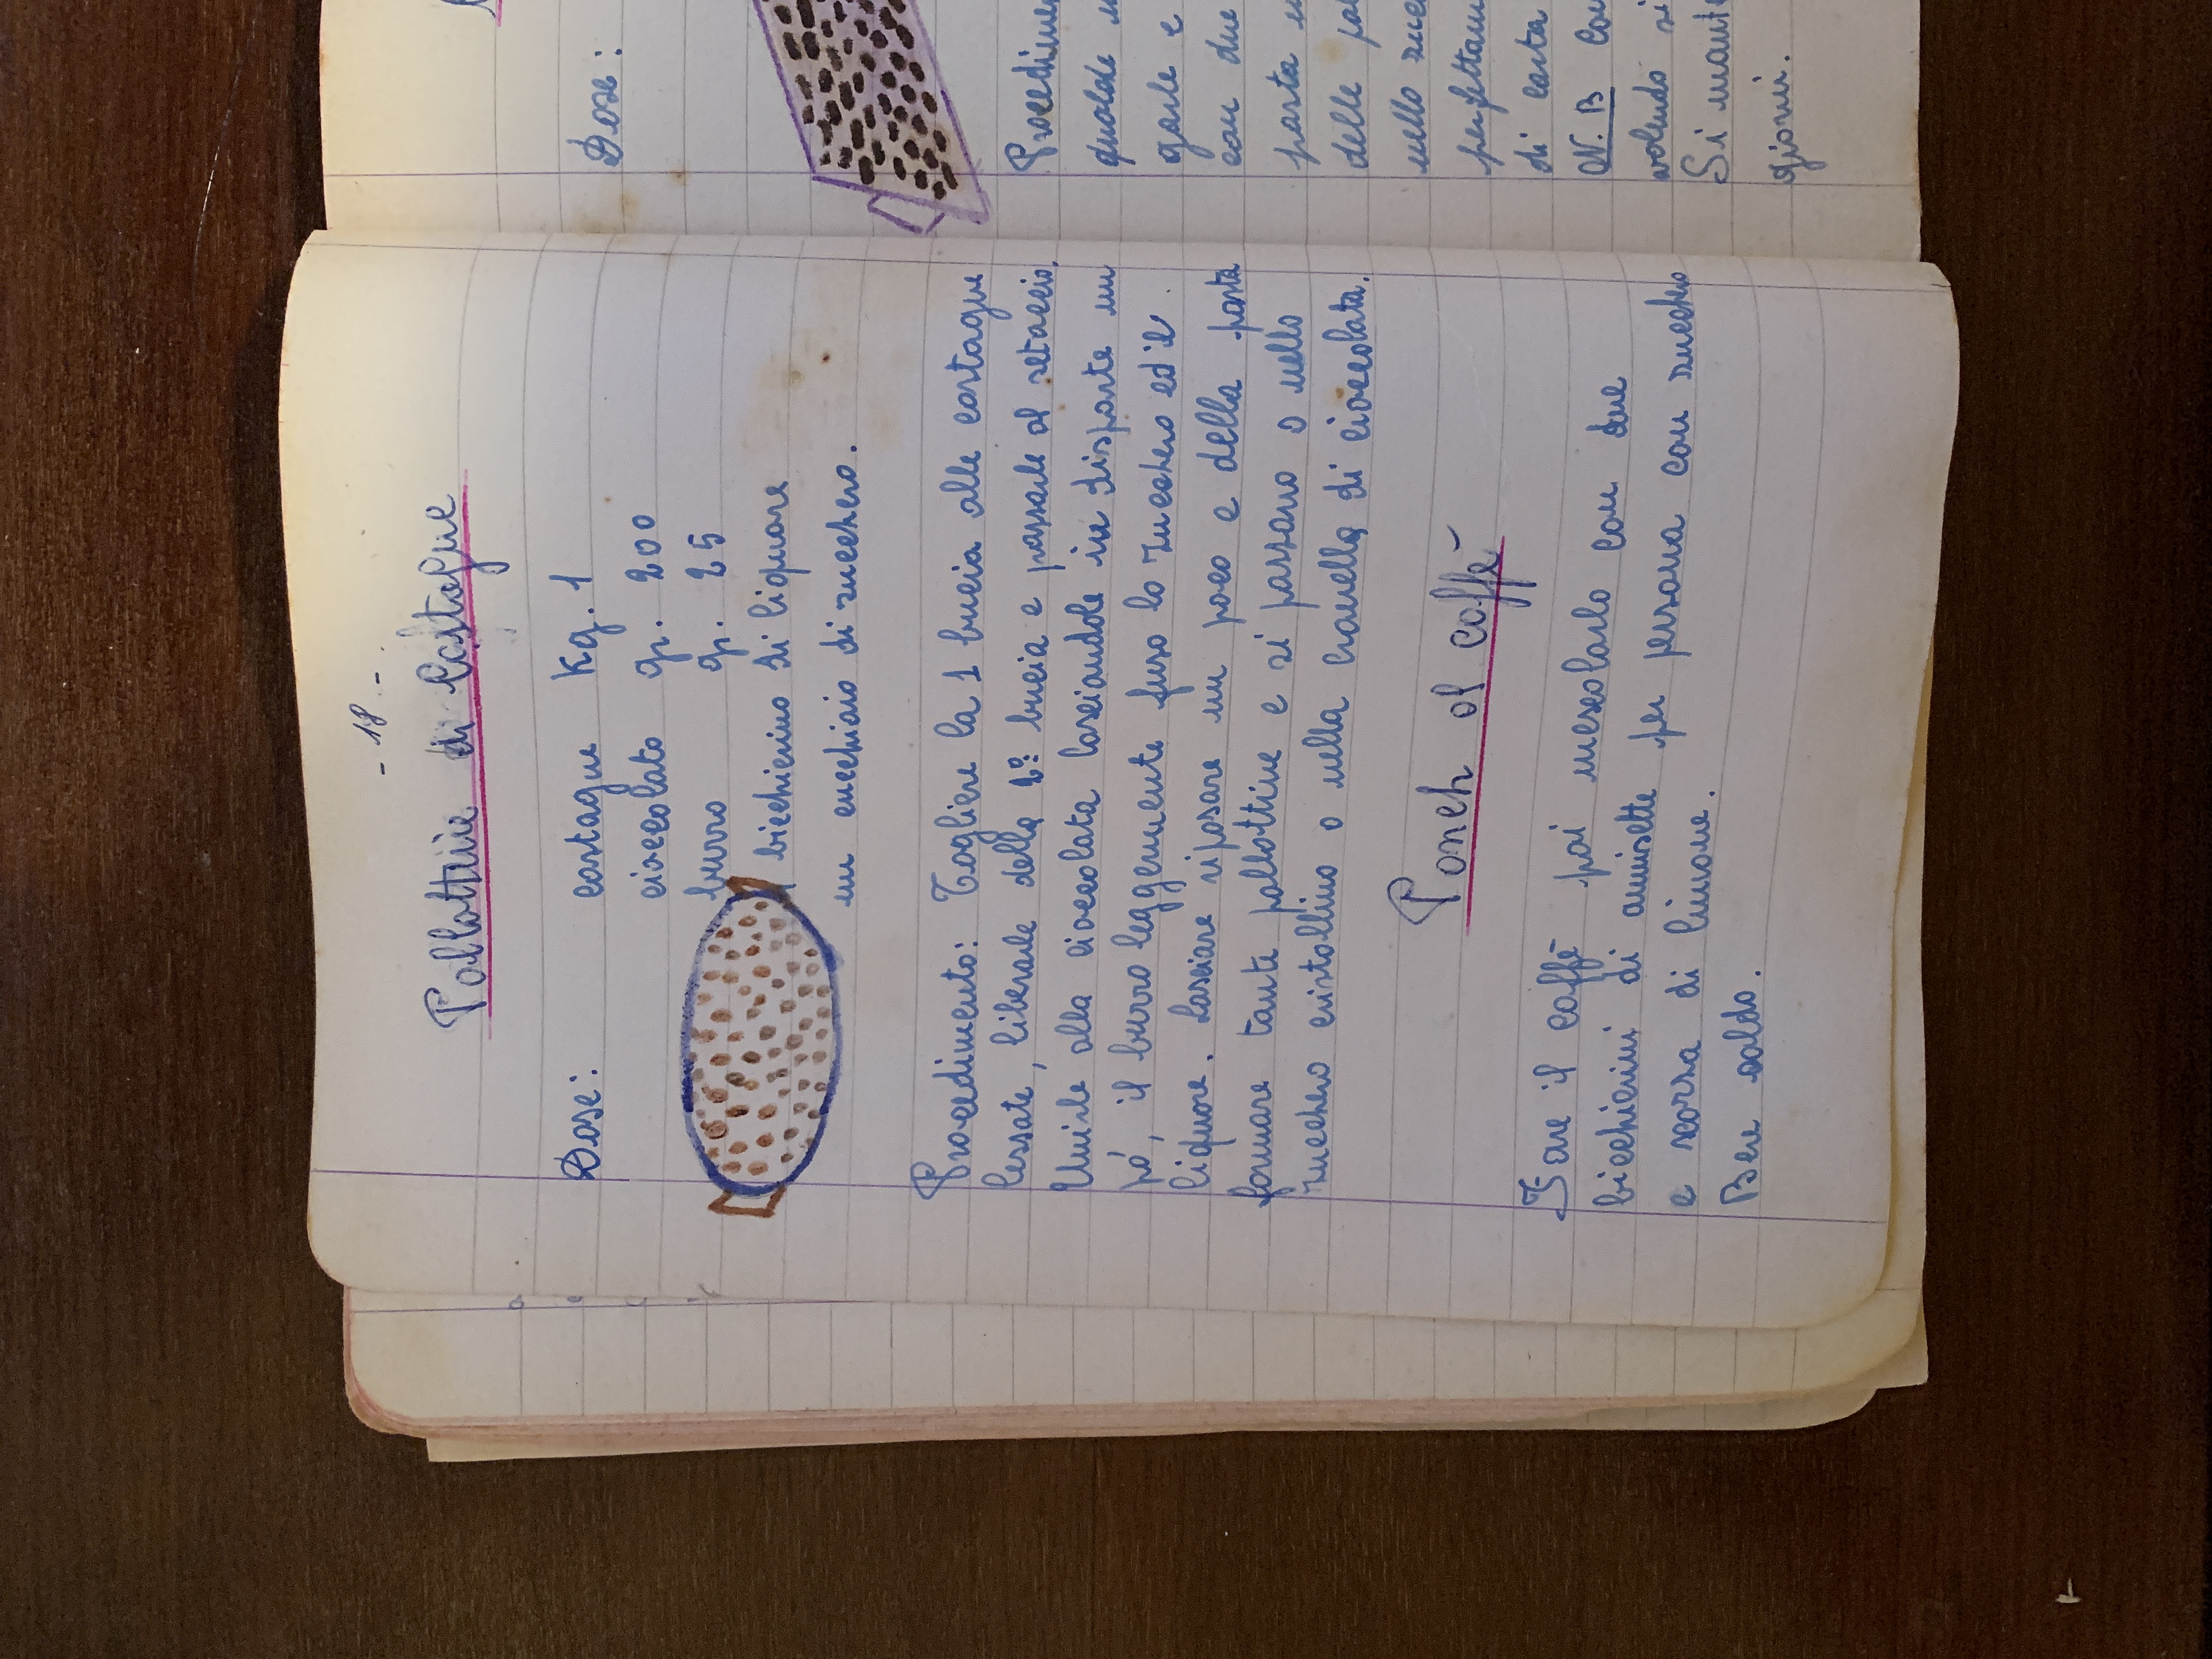 - 18 -
Pallottine di Castagne
Dose: castagne Kg. 1
cioccolato gr. 200
burro gr. 25
1 bicchierino di liquore
un cucchiaio di zucchero.
Procedimento: Togliere la 1 bucia alle castagne
lessate, liberarle della 2º: bucia e passarle al setaccio.
Unirle alla cioccolata lasciandole in disparte un
pó, il burro leggermente fuso lo zucchero ed il
liquore. Lasciare riposare un poco e della pasta
formare tante pallottine e si passano o nello
zucchero cristallino o nella granella di cioccolata.
Ponch al caffè
Fare il caffè poi mescolarlo con due
bicchierini di annisette per persona con zucchero
e scorza di limone.
Bere caldo.
Dose:
Procedimen
qualche
garle e
con due
pasta
delle pal
nello zucc
perfettam
di carta
N. B con
volendo si
Si mante
giorni.